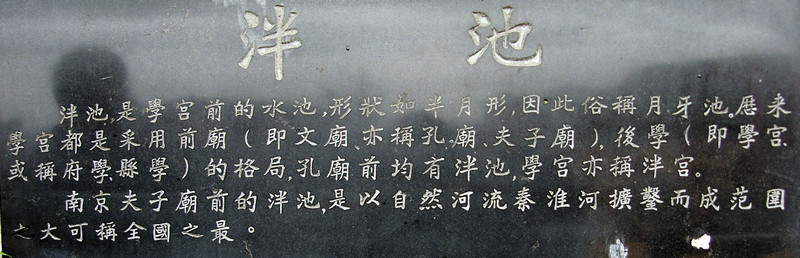 泮池
泮池,是學宮前的水池,形狀如半月形,因此俗稱月牙池。歷来
學宮都是采用前廟（即文廟、亦稱孔廟、夫子廟）,後學（即學宮、
或稱府學、縣學）的格局,孔廟前均有泮池,學宮亦稱泮宮。
南京夫子廟前的泮池,是以自然河流秦淮河擴鑿而成范圍
之大可稱全國之最。